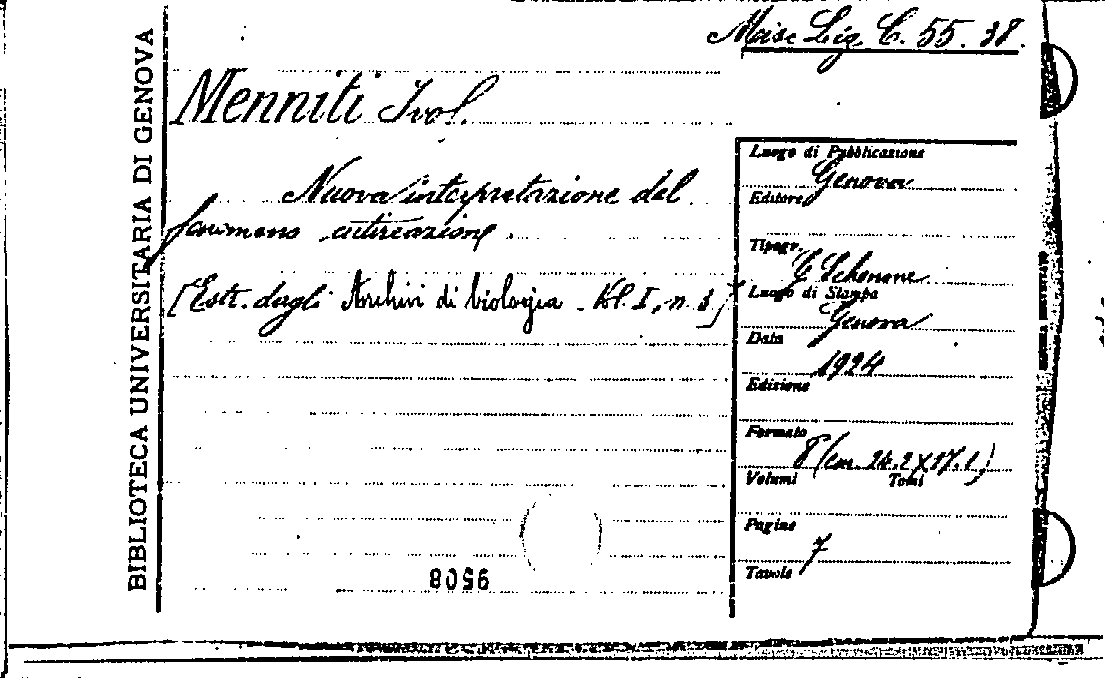 BIBLIOTECA UNIVERSITARIA DI GENOVA
Misc Lig C. 55. 38.
Menniti Ivol.
Nuova interpretazione del
fenomeno cutireazione.
[Estr. dagli Archivi di biologia. Vol. I, n. 3]
Luogo di Pubblicazione
Genova
Editore
Tipogr.
C Schenone
Luogo di Stampa
Genova
Data
1924
Edizione
Formato
8° (cm. 24.2 X 17.1)
Volumi Tomi
Pagine
7
Tavole
9508